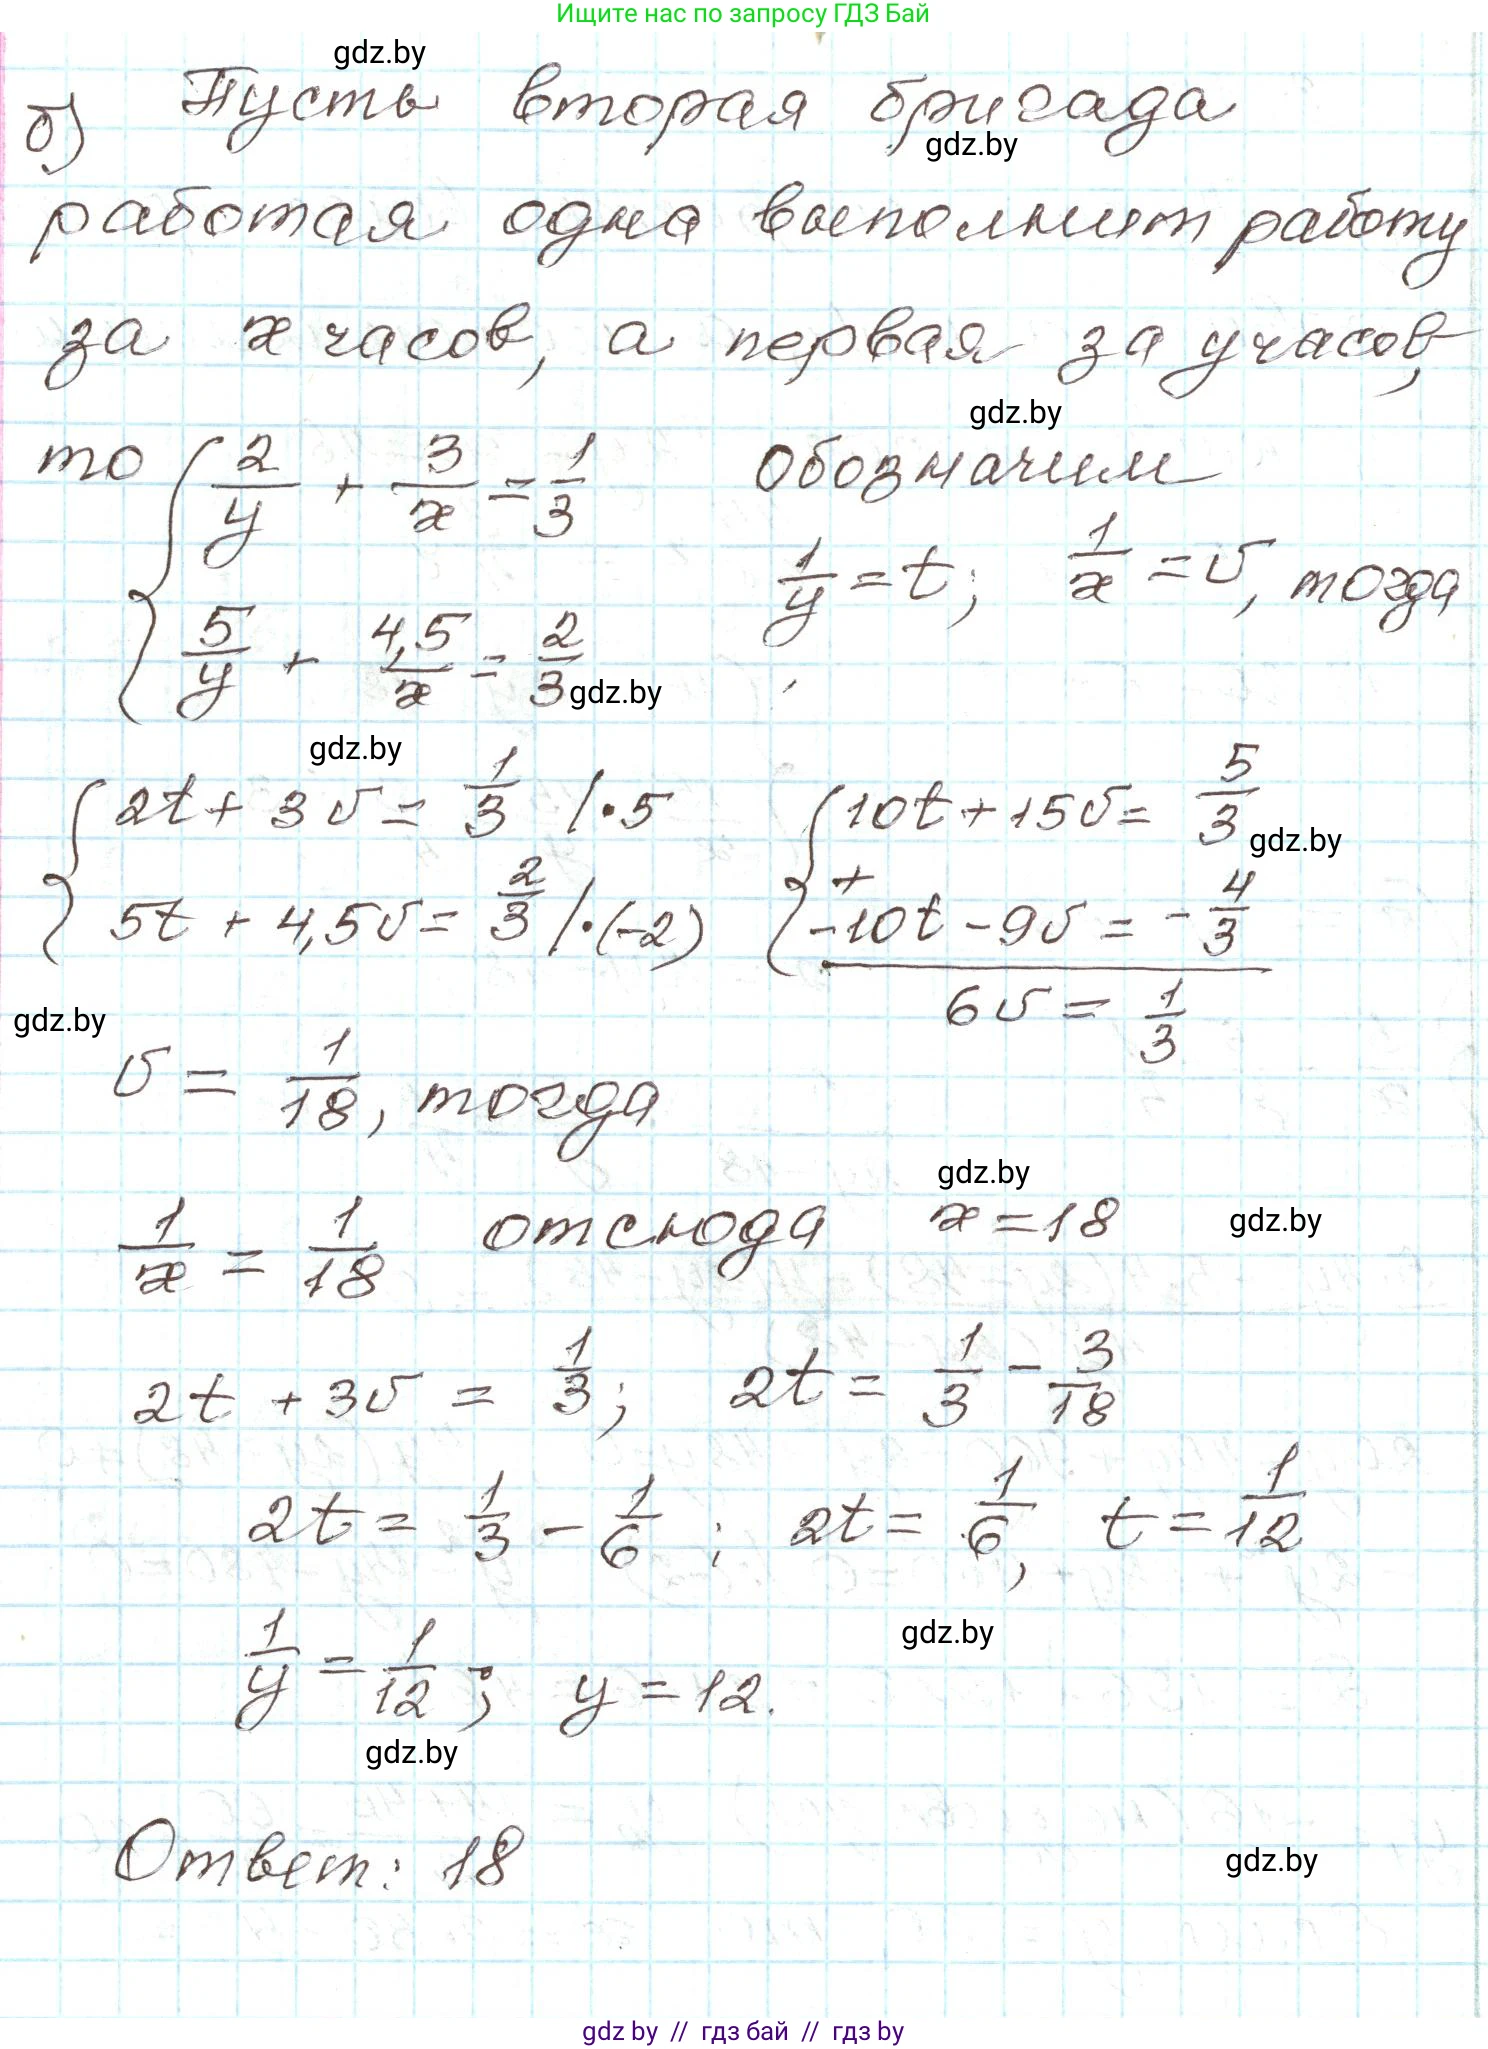 Ищите нас по запросу ГДЗ Бай
gdz.by
б) Пусть вторая бригада
gdz.by
работая одна выполнит работу
за x часов, а первая за y часов,
gdz.by
то { 2/y + 3/x = 1/3 обозначим
1/y = t; 1/x = v, тогда
5/y + 4,5/x = 2/3
gdz.by
gdz.by
{ 2t + 3v = 1/3 /·5 { 10t + 15v = 5/3
gdz.by
+
5t + 4,5v = 2/3 /·(-2) -10t - 9v = -4/3
6v = 1/3
gdz.by
v = 1/18, тогда
gdz.by
1/x = 1/18 отсюда x = 18
gdz.by
2t + 3v = 1/3; 2t = 1/3 - 3/18
2t = 1/3 - 1/6; 2t = 1/6, t = 1/12
gdz.by
1/y = 1/12; y = 12.
gdz.by
Ответ: 18
gdz.by
gdz by // гдз бай // гдз by